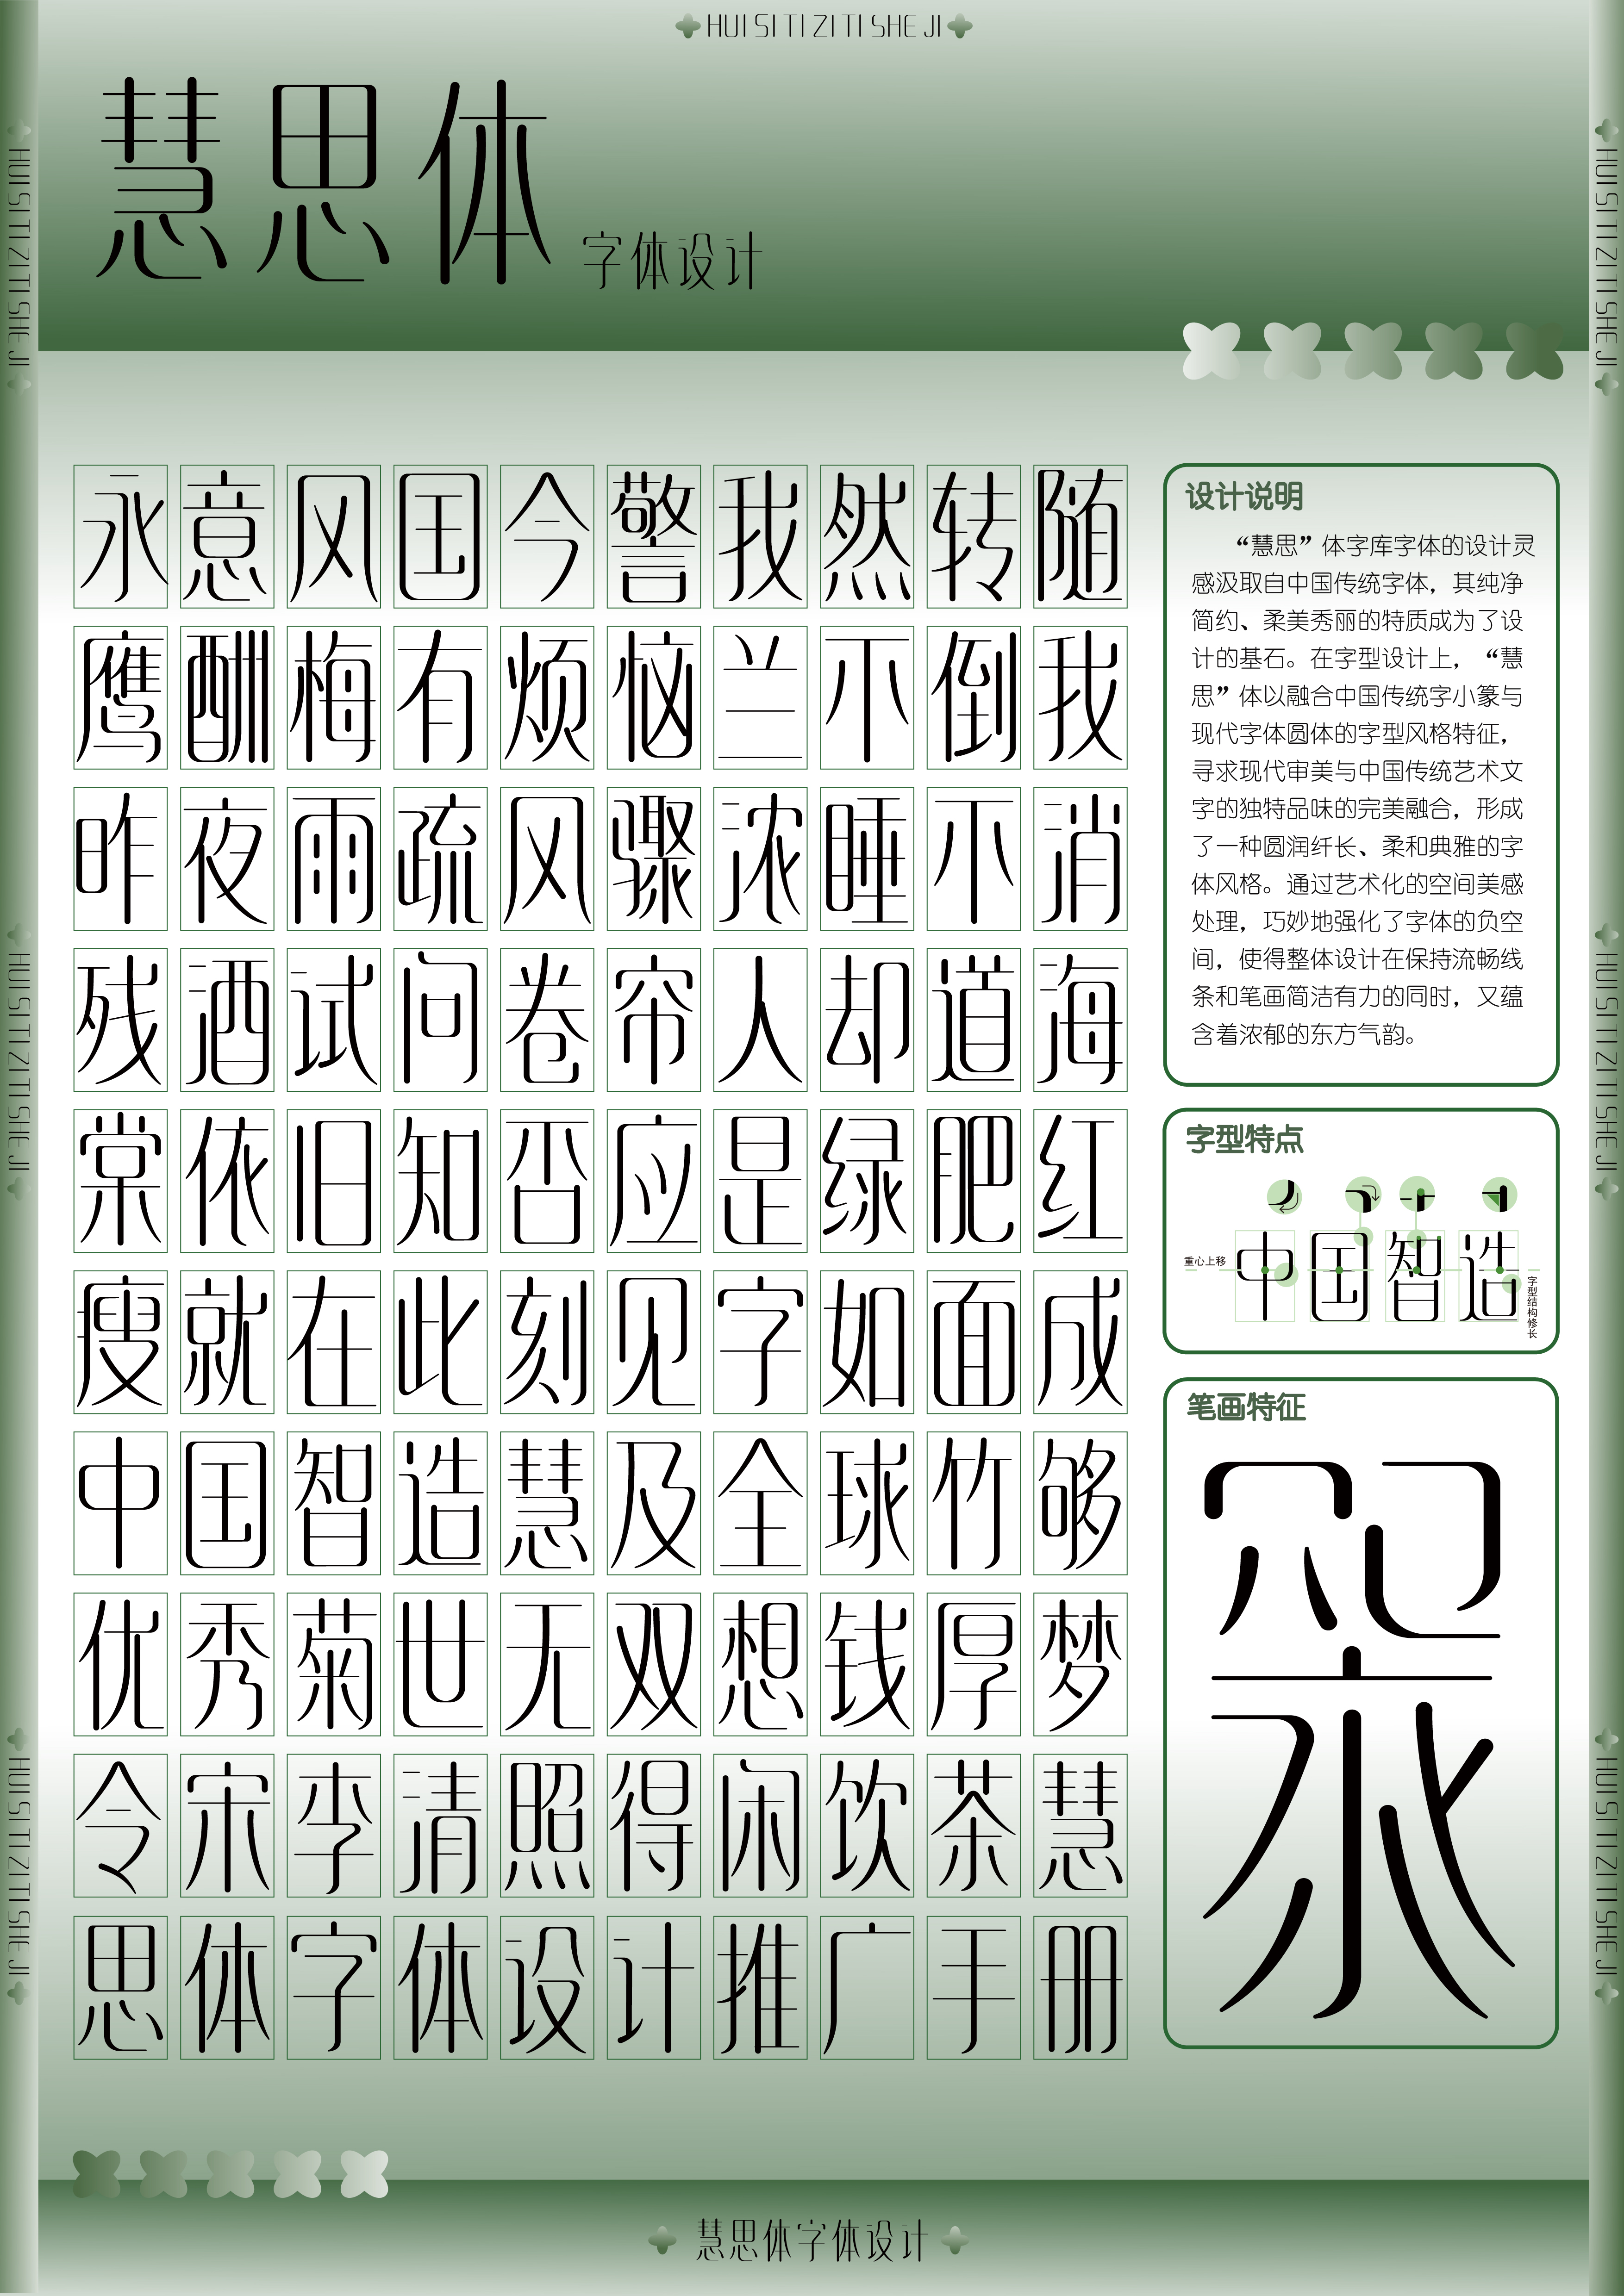 HUI SI TI ZI TI SHE JI
慧思体
字体设计
永意风国今警我然转随
鹰酬梅有烦恼兰不倒我
昨夜雨疏风骤浓睡不消
残酒试问卷帘人却道海
棠依旧知否应是绿肥红
瘦就在此刻见字如面成
中国智造慧及全球竹够
优秀菊世无双想钱厚梦
令宋李清照得闲饮茶慧
思体字体设计推广手册
设计说明
“慧思”体字库字体的设计灵
感汲取自中国传统字体，其纯净
简约、柔美秀丽的特质成为了设
计的基石。在字型设计上，“慧
思”体以融合中国传统字小篆与
现代字体圆体的字型风格特征，
寻求现代审美与中国传统艺术文
字的独特品味的完美融合，形成
了一种圆润纤长、柔和典雅的字
体风格。通过艺术化的空间美感
处理，巧妙地强化了字体的负空
间，使得整体设计在保持流畅线
条和笔画简洁有力的同时，又蕴
含着浓郁的东方气韵。
字型特点
重心上移
中国智造
字型结构修长
笔画特征
HUI SI TI ZI TI SHE JI
HUI SI TI ZI TI SHE JI
HUI SI TI ZI TI SHE JI
HUI SI TI ZI TI SHE JI
HUI SI TI ZI TI SHE JI
HUI SI TI ZI TI SHE JI
慧思体字体设计